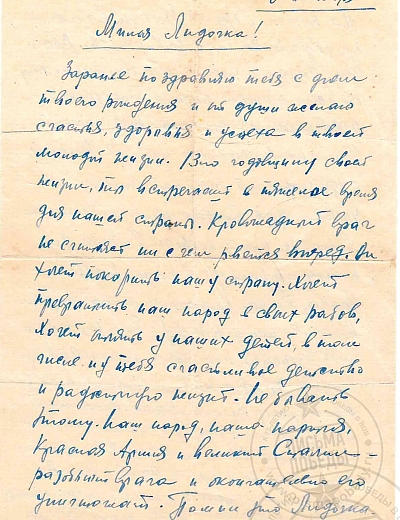 Милая Лидочка!
Заранее поздравляю тебя с днем
твоего рождения и от души желаю
счастья, здоровья и успеха в твоей
молодой жизни. 13ю годовщину своей
жизни, ты встречаешь в тяжелое время
для нашей страны. Кровожадный враг
не считаясь ни с чем рвется вперед. Он
хочет покорить нашу страну. Хочет
превратить наш народ в своих рабов,
хочет отнять у наших детей, в том
числе и у тебя счастливое детство
и радостную жизнь. Не бывать
этому. Наш народ, наша партия,
Красная Армия и великий Сталин –
разобьют врага и окончательно его
уничтожат. Помни это Лидочка
ПИСЬМА
ПОБЕДЫ